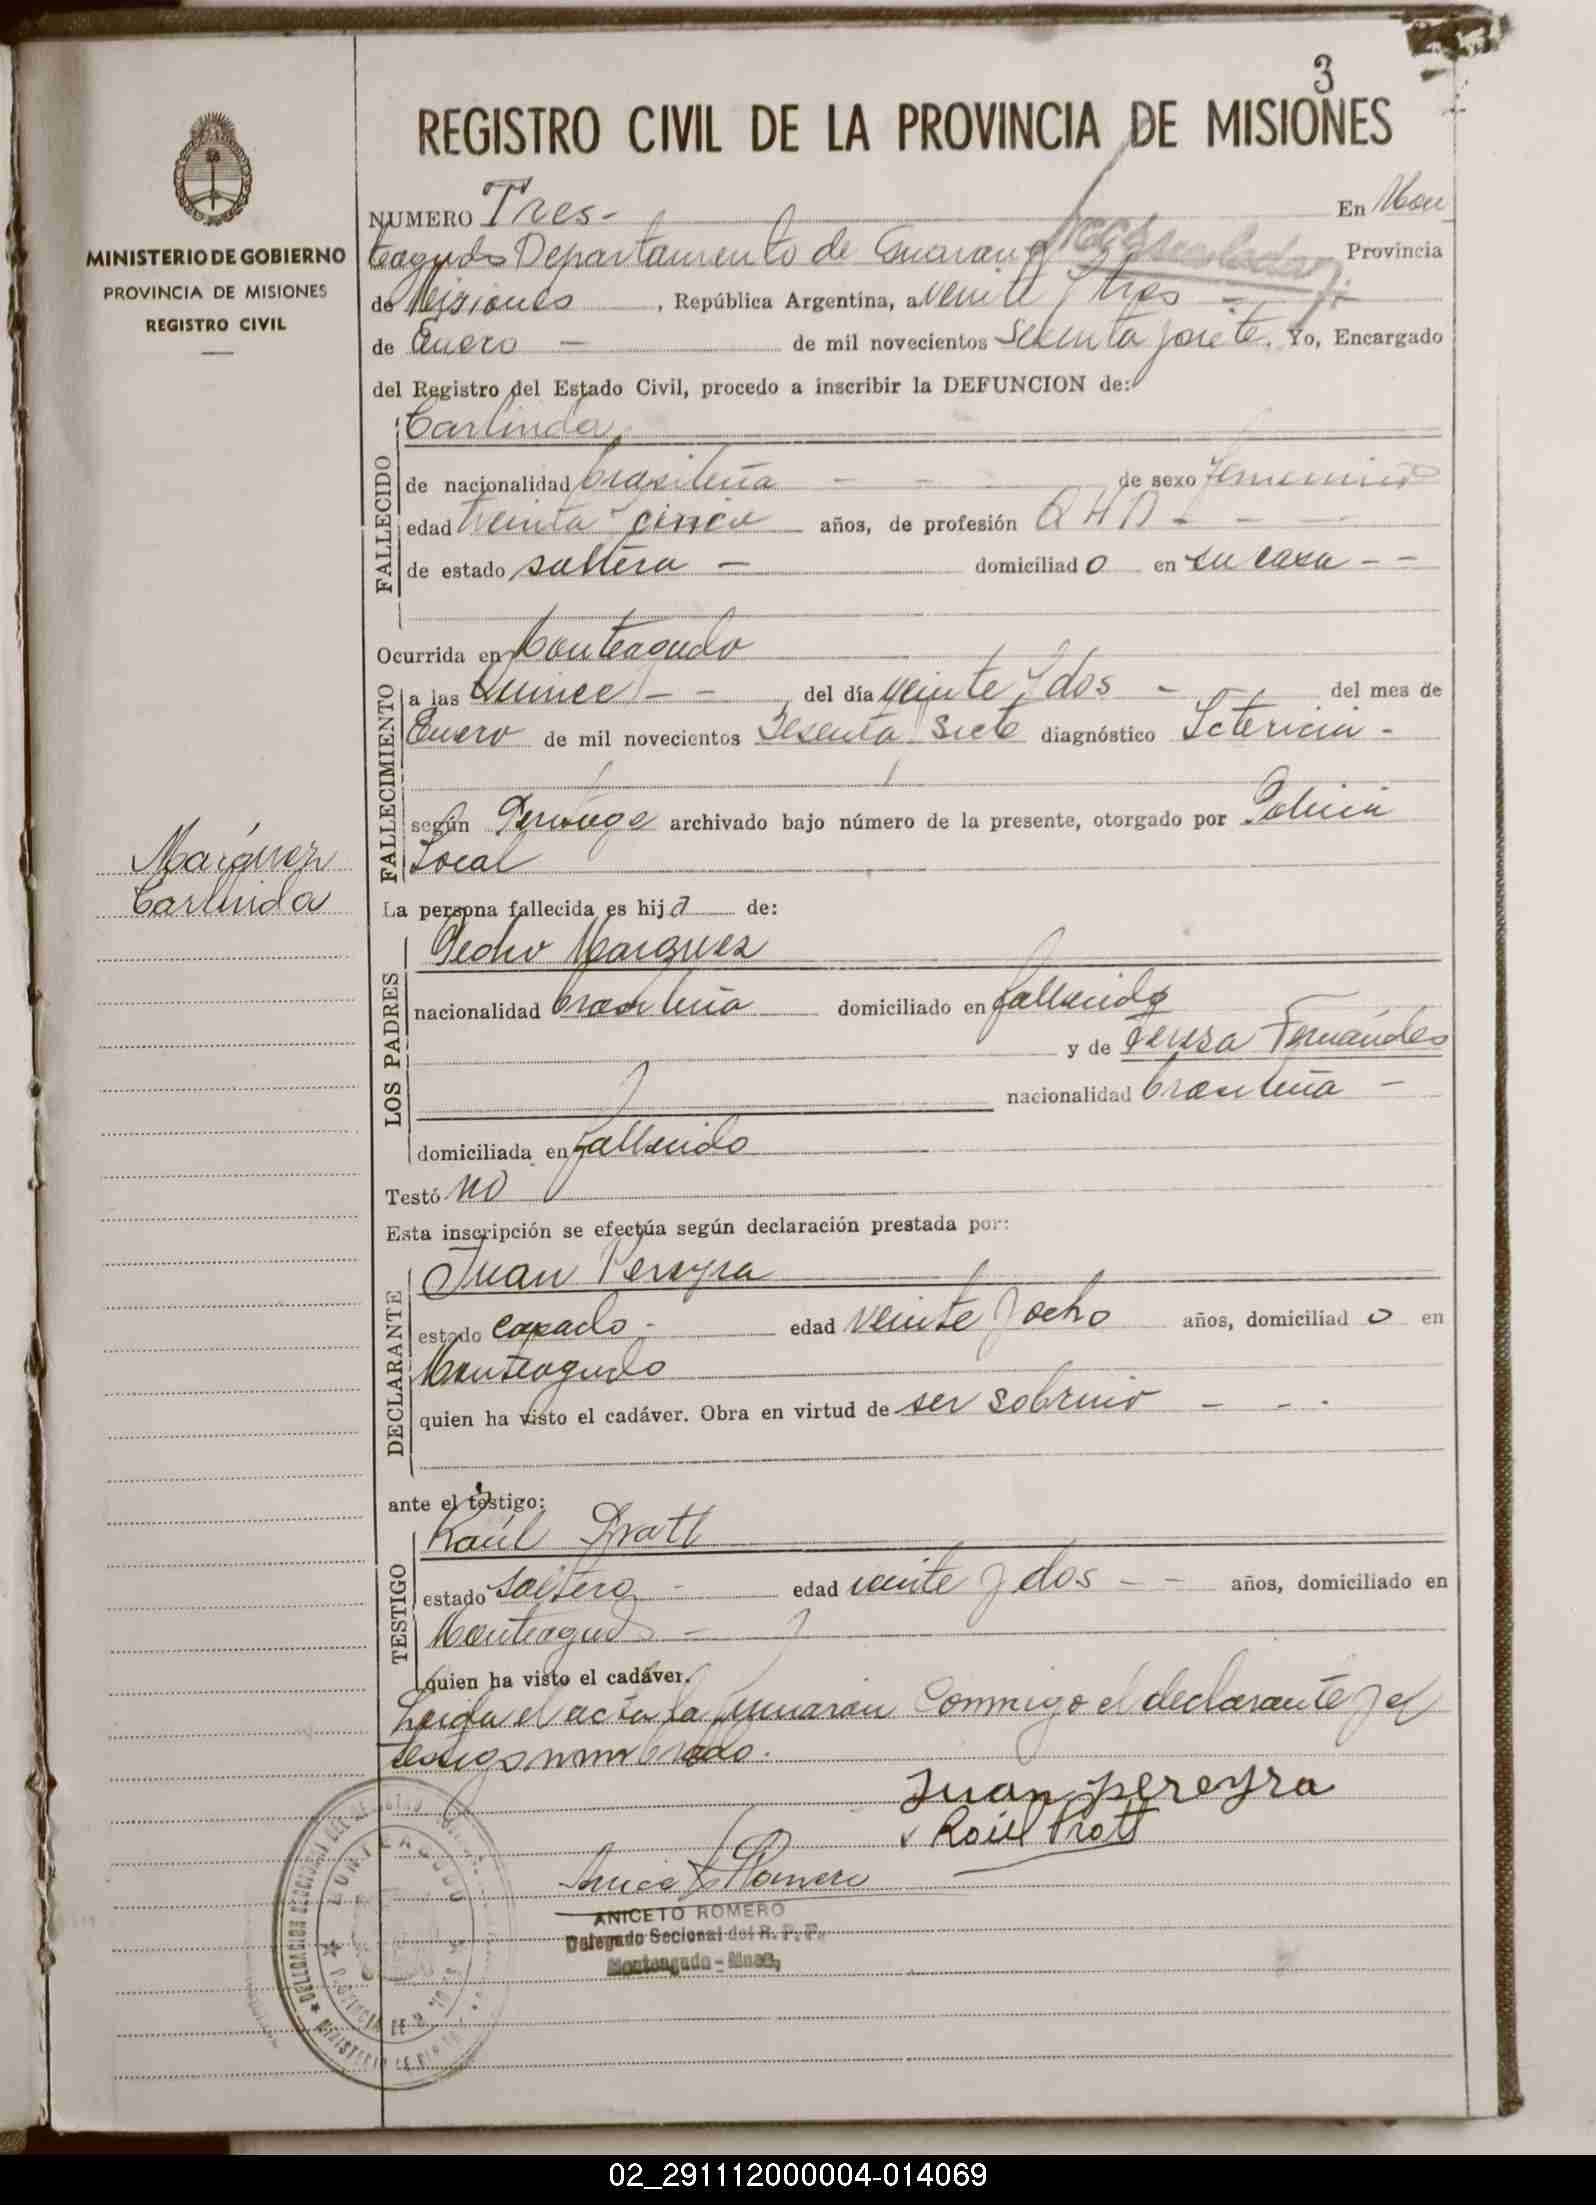 3
REGISTRO CIVIL DE LA PROVINCIA DE MISIONES
MINISTERIO DE GOBIERNO
PROVINCIA DE MISIONES
REGISTRO CIVIL
NUMERO Tres- En Mon
teagudo Departamento de Guaraní Provincia
de Misiones , República Argentina, a veinte y tres -
de Enero - de mil novecientos sesenta y siete. Yo, Encargado
del Registro del Estado Civil, procedo a inscribir la DEFUNCION de:
FALLECIDO
Carlinda
de nacionalidad brasileña - - - de sexo femenino
edad treinta y cinco años, de profesión Q H D - - -
de estado soltera - domiciliado en su casa - -
Ocurrida en Monteagudo
FALLECIMIENTO
a las Quince - - del día veinte y dos - del mes de
Enero de mil novecientos sesenta y siete diagnóstico Ictericia -
según archivado bajo número de la presente, otorgado por Policia
Local
Márquez
Carlinda
La persona fallecida es hija de:
LOS PADRES
Pedro Marquez
nacionalidad brasileña domiciliado en fallecido
y de Tereza Fernándes
nacionalidad brasileña -
domiciliada en fallecido
Testó no
Esta inscripción se efectúa según declaración prestada por:
DECLARANTE
Juan Pereyra
estado casado - edad veinte y ocho años, domiciliado en
Monteagudo
quien ha visto el cadáver. Obra en virtud de ser sobrino - - -
ante el testigo:
TESTIGO
Raúl Pratt
estado soltero - edad veinte y dos - - años, domiciliado en
Monteagudo -
quien ha visto el cadáver.
Leida el acta la firmarón commigo el declarante y el
testigo nombrado.
Juan pereyra
Raúl Pratt
ANICETO ROMERO
Delegado Seccional del R. P. P.
Monteagudo - Mnes,
DELEGACION SECCIONAL DEL REGISTRO
MONTEAGUDO
PROVINCIA DE MISIONES
02_291112000004-014069